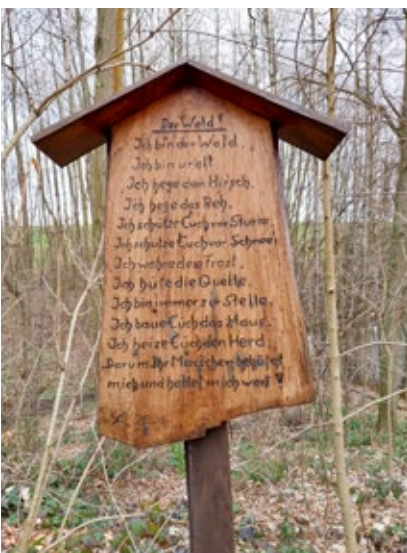 Der Wald!
Ich bin der Wald.
Ich bin uralt
Ich hege den Hirsch.
Ich hege das Reh.
Ich schütze Euch vor Sturm.
Ich schütze Euch vor Schnee!
Ich wahre den Frost.
Ich hüte die Quelle.
Ich bin immer zur Stelle.
Ich baue Euch das Haus.
Ich heize Euch den Herd.
Darum Ihr Menschen behütet
mich und haltet mich wert!